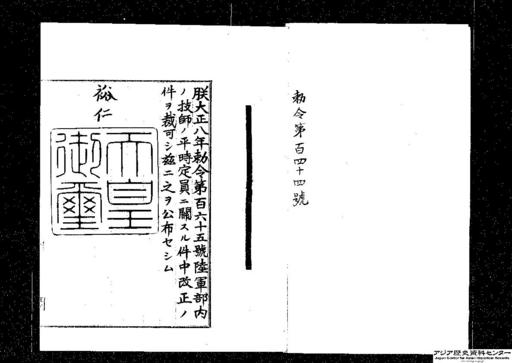 勅令第百四十四號
朕大正八年勅令第百六十五號陸軍部内
ノ技師ノ平時定員ニ關スル件中改正ノ
件ヲ裁可シ茲ニ之ヲ公布セシム
裕仁
天皇
御璽
アジア歴史資料センター
Japan Center for Asian Historical Records